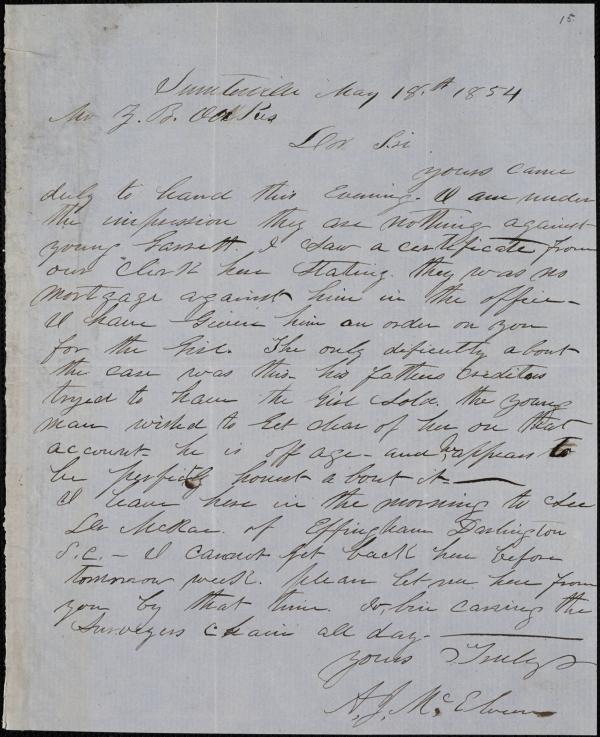 15
Sumterville May 18th 1854
Mr Z. B. Oakes
Dr Sir
yours came
duly to hand this Evening. I am under
the impression they are nothing against
young Garrett. I Saw a certificate from
our Clerk here Stating they was no
mortgage against him in the office -
I have Given him an order on you
for the Girl. The only dificulty about
the case was this his fathers Creditors
tryed to have the Girl Sold. the young
man wished to Get clear of her on that
account - he is off age - and appears to
be perfectly honest about it —
I leave here in the morning to See
Dr McRae of Effingham Darlington
S.C. - I cannot Get back here before
tomorrow week. please let me here from
you by that time. Iv bin carring the
Surveyers chain all day. —
yours Truly
A. J. McElveen